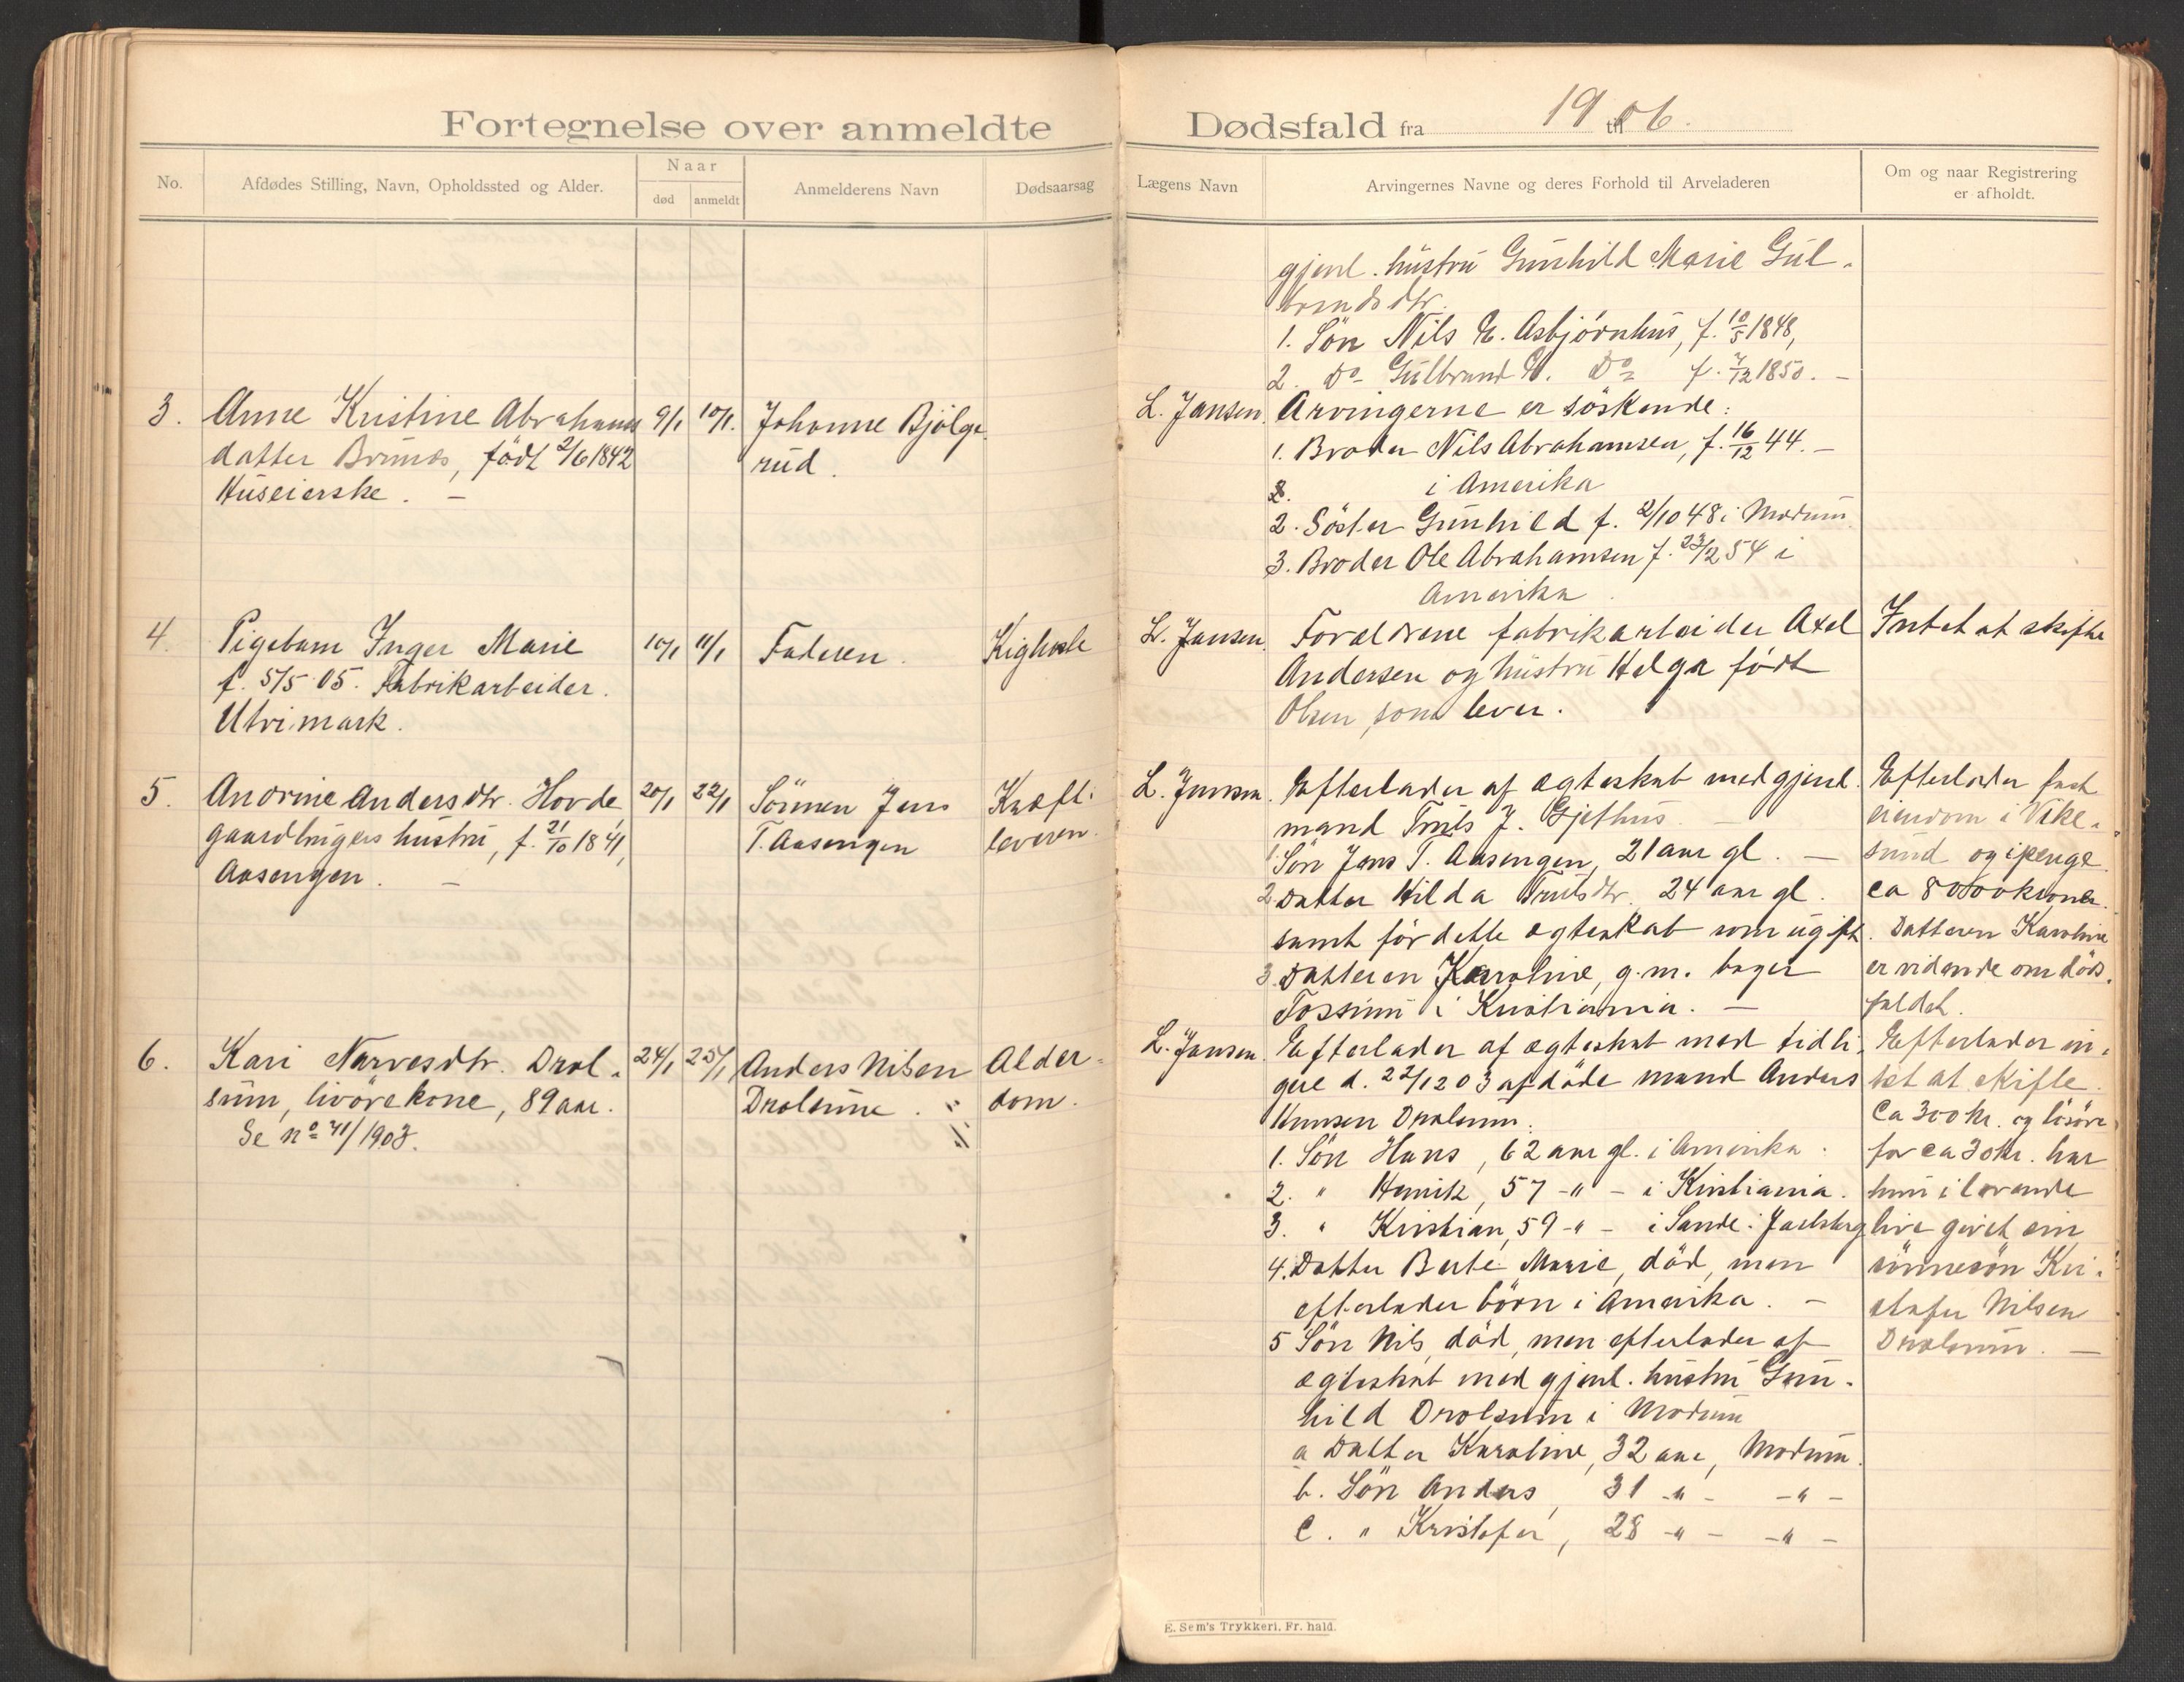 Fortegnelse over anmeldte Dødsfald fra 1906. til
No.
Afdødes Stilling, Navn, Opholdssted og Alder.
Naar
død
anmeldt
Anmelderens Navn
Dødsaarsag
Lægens Navn
Arvingernes Navne og deres Forhold til Arveladeren
Om og naar Registrering
er afholdt.
gjenl. hustru Gunhild Marie Gul-
brandsdtr.
1. Sön Nils E. Asbjörnhus, f. 10/5 1848,
2. Do Gulbrand E. Do f. 7/12 1850. -
3.
Anne Kristine Abrahams
datter Brunes, födt 2/6 1842
Huseierske. -
9/1
10/1.
Johanne Bjölge-
rud.
L. Jansen.
Arvingerne er söskende:
1. Broder Nils Abrahamsen, f. 16/12 44. -
i Amerika
2. Söster Gunhild f. 2/10 48 i Modum.
3. Broder Ole Abrahamsen f. 23/2 54 i
Amerika.
4.
Pigebarn Inger Marie
f. 5/5 05. Fabrikarbeider.
Utvimark.
10/1
11/1
Faderen.
Kighoste
L. Jansen.
Forældrene fabrikarbeider Axel
Andersen og hustru Helga födt
Olsen, som lever.
Intet at skifte
5.
Andrine Andersdtr. Hovde
gaardbrugers hustru, f. 21/10 1841,
Aasengen. -
20/1
22/1
Sönnen Jens
T. Aasengen
Kræft i
leveren.
L. Jansen.
Efterlader af ægteskab med gjenl.
mand Truls J. Gjethus. -
1. Sön Jens T. Aasengen, 21 aar gl. -
2. Datter Hilda Trulsdtr. 24 aar gl.
samt för dette ægteskab som ugift
3. Datteren Karoline, g. m. bager
Tossum i Kristiania. -
Efterlader fast
eiendom i Vike-
sund og i penge
ca 8000 kroner.
Datteren Karoline
er vidende om döds-
faldet.
6.
Kari Narvesdtr. Drol-
sum, livörekone, 89 aar.
Se no 41/1903.
24/1
25/1
Anders Nilsen
Drolsum.
Alder-
dom.
L. Jansen.
Efterlader af ægteskab med tidli-
gere d. 22/12 03 afdöde mand Anders
Knusen Drolsum.
1. Sön Hans, 62 aar gl. i Amerika.
2. " Henrik, 57 -"- i Kristiania.
3. " Kristian, 59 -"- i Sande i Jarlsberg
4. Datter Berte Marie, död, men
efterlader börn i Amerika. -
5 Sön Nils, död, men efterlader af
ægteskab med gjenl. hustru Gun-
hild Drolsum i Modum
a Datter Karoline, 32 aar, Modum.
b. Sön Anders, 31 -"- -"-
c. " Kristofer, 28 -"- -"-
Efterlader in-
tet at skifte.
Ca 300 kr. og lösöre
for ca 30 kr. har
hun i levende
live givet sin
sönnesön Kri-
stofer Nilsen
Drolsum. -
E. Sem's Trykkeri, Fr. hald.